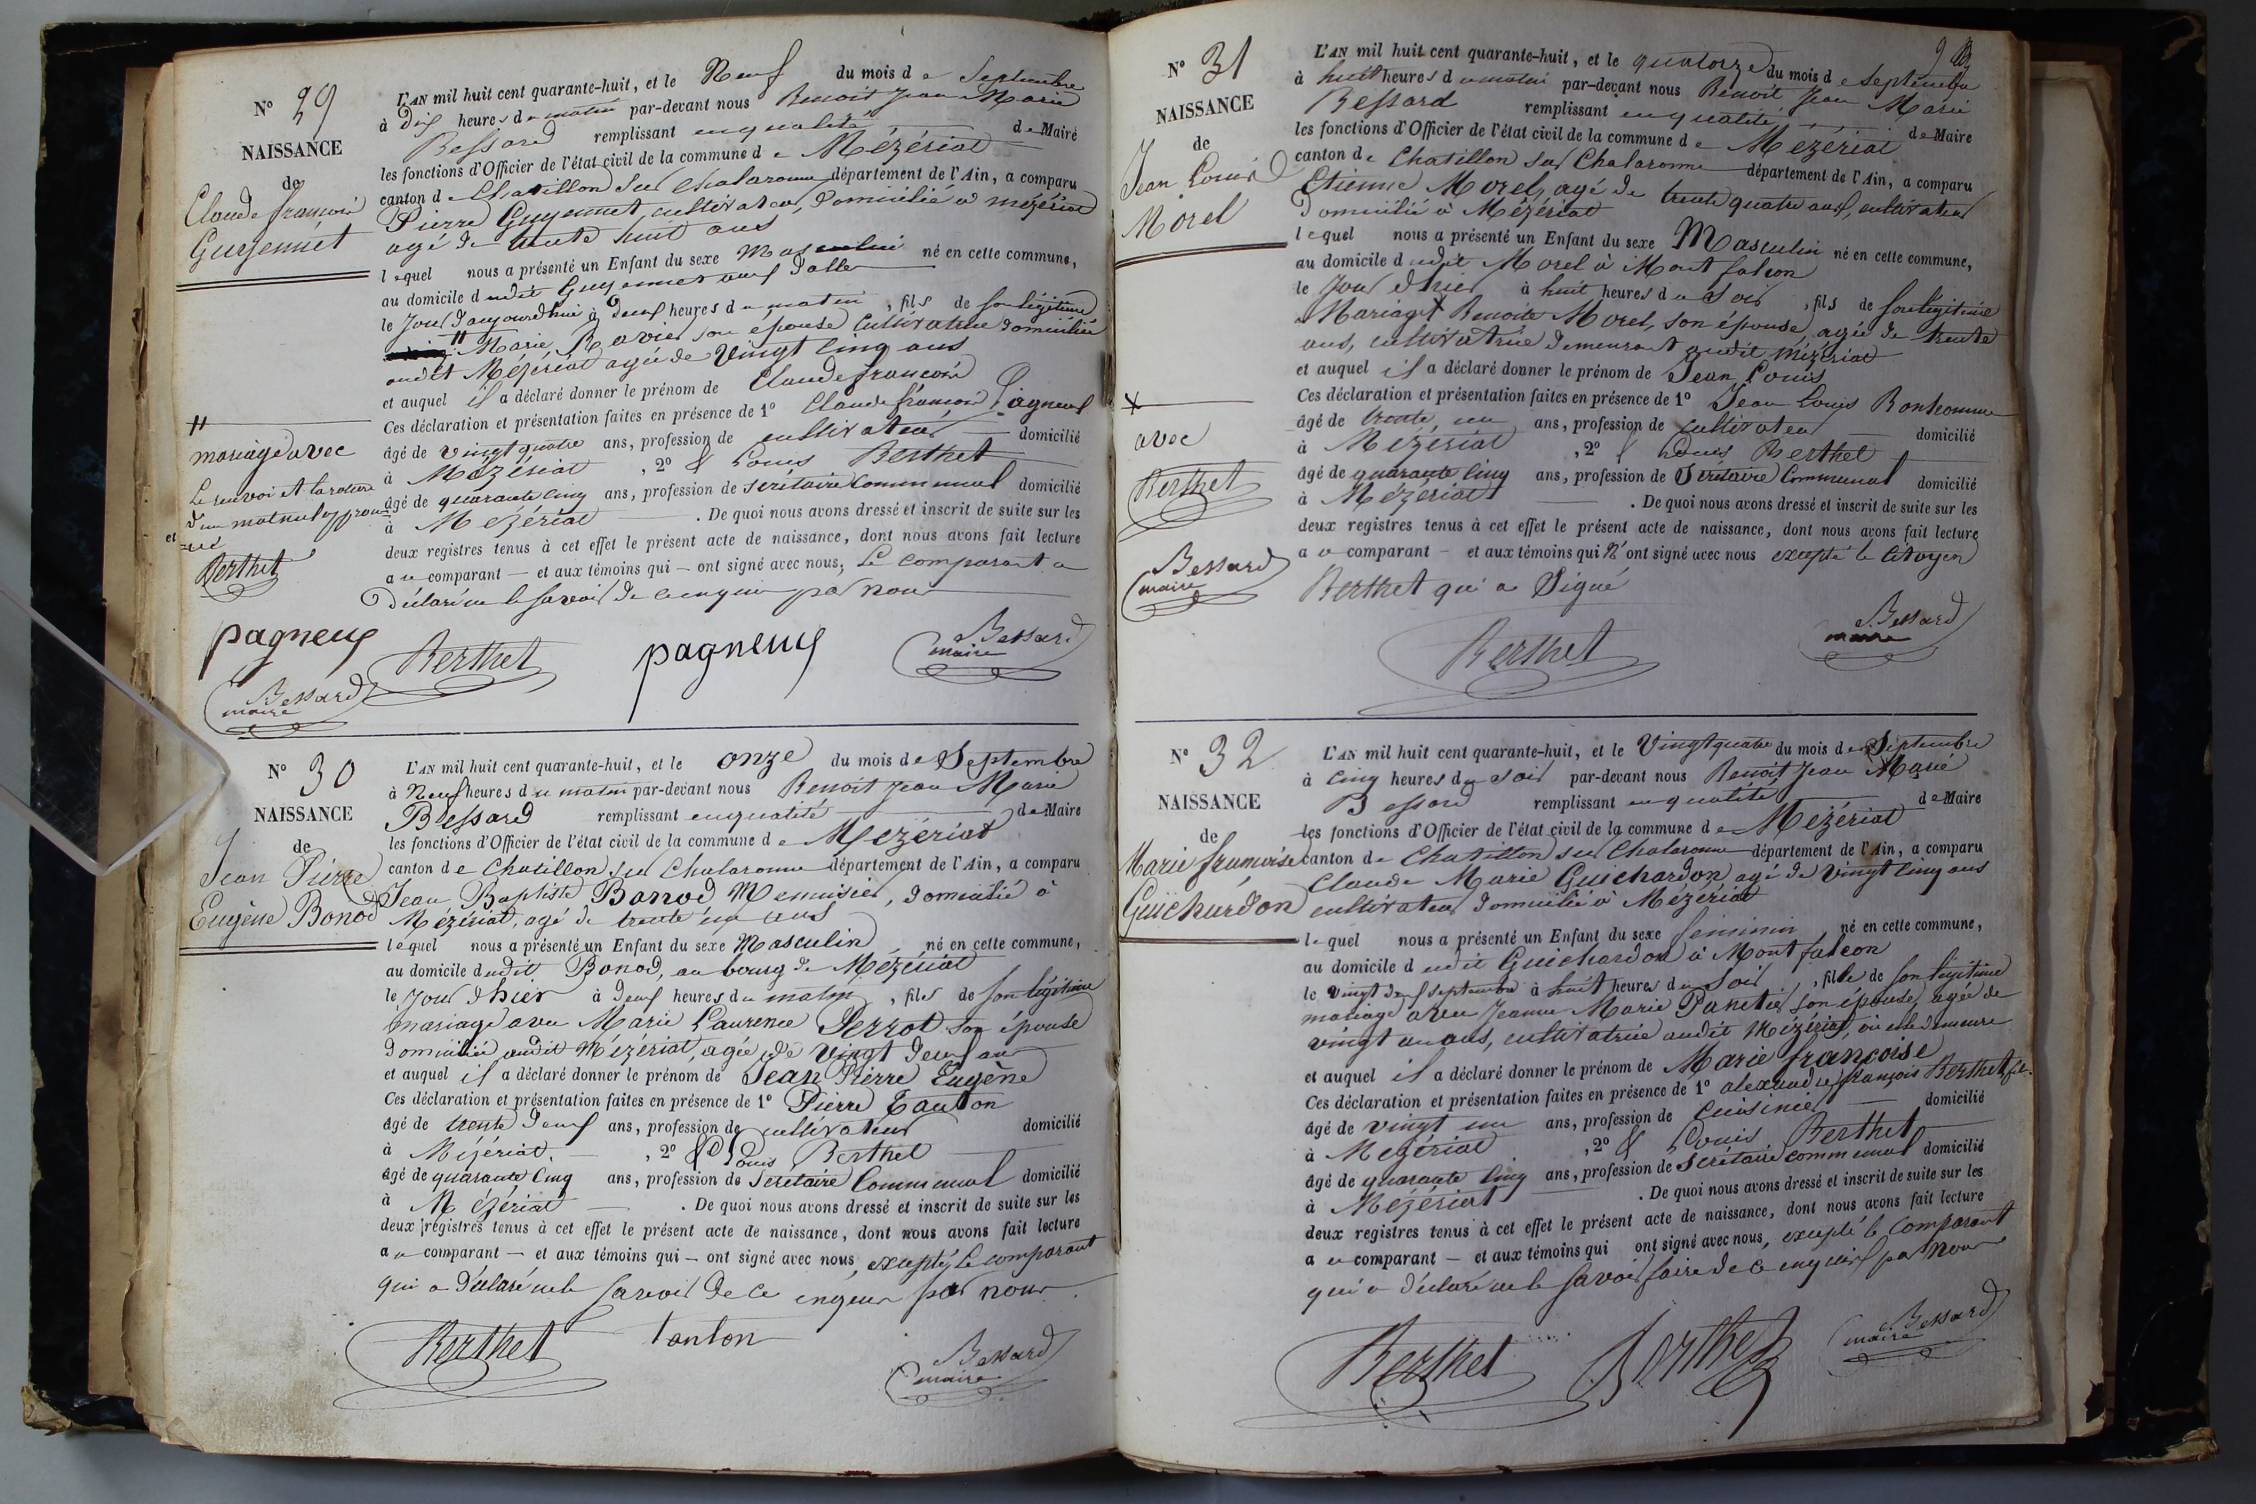 N° 29
NAISSANCE
de
Claude françois
Guyennet
L'AN mil huit cent quarante-huit, et le Neuf du mois de Septembre
à dix heures du matin par-devant nous Benoit Jean Marie
Bessard remplissant en qualité de Maire
les fonctions d'Officier de l'état civil de la commune de Mézériat
canton de Chatillon sur Chalaronne département de l'Ain, a comparu
Pierre Guyennet, cultivateur, domicilié à mézériat
agé de trente huit ans
lequel nous a présenté un Enfant du sexe Masculin né en cette commune,
au domicile dudit Guyennet
le Jour d'aujourd'hui à deux heures du matin, fils de son légitime
" Marie Ravier son épouse cultivatrice domiciliée
audit Mézériat agée de Vingt cinq ans
et auquel il a déclaré donner le prénom de Claude françois
Ces déclaration et présentation faites en présence de 1° Claude françois Pagneux
âgé de vingt quatre ans, profession de cultivateur domicilié
à Mézériat, 2° & Louis Berthet
âgé de quarante cinq ans, profession de secrétaire Communal domicilié
à Mézériat. De quoi nous avons dressé et inscrit de suite sur les
deux registres tenus à cet effet le présent acte de naissance, dont nous avons fait lecture
au comparant — et aux témoins qui — ont signé avec nous, Le comparant a
déclaré ne le savoir de ce enquis par nous
"
mariage avec
Le renvoi et la rature
d'un mot nul approu-
vé
Berthet
pagneux Berthet pagneux Bessard maire
Bessard maire
N° 30
NAISSANCE
de
Jean Pierre
Eugène Bonod
L'AN mil huit cent quarante-huit, et le onze du mois de Septembre
à Neuf heures du matin par-devant nous Benoit Jean Marie
Bessard remplissant en qualité de Maire
les fonctions d'Officier de l'état civil de la commune de Mézériat
canton de Chatillon sur Chalaronne département de l'Ain, a comparu
Jean Baptiste Bonod Menuisier, domicilié à
Mézériat, agé de trente un ans
lequel nous a présenté un Enfant du sexe Masculin, né en cette commune,
au domicile dudit Bonod, au bourg de Mézériat
le Jour d'hier à deux heures du matin, fils de son légitime
mariage avec Marie Laurence Perrot son épouse
domiciliée audit Mézériat, agée de Vingt deux ans
et auquel il a déclaré donner le prénom de Jean Pierre Eugène
Ces déclaration et présentation faites en présence de 1° Pierre Tanton
âgé de trente deux ans, profession de cultivateur domicilié
à Mézériat, 2° & Louis Berthet
âgé de quarante cinq ans, profession de Secrétaire Communal domicilié
à Mézériat. De quoi nous avons dressé et inscrit de suite sur les
deux registres tenus à cet effet le présent acte de naissance, dont nous avons fait lecture
au comparant — et aux témoins qui — ont signé avec nous, excepté le comparant
qui a déclaré ne le savoir de ce enquis par nous.
Berthet tanton Bessard maire
N° 31
NAISSANCE
de
Jean Louis
Morel
L'AN mil huit cent quarante-huit, et le quatorze du mois de Septembre
à huit heures du matin par-devant nous Benoit Jean Marie
Bessard remplissant en qualité de Maire
les fonctions d'Officier de l'état civil de la commune de Mézériat
canton de Chatillon sur Chalaronne département de l'Ain, a comparu
Etienne Morel, agé de trente quatre ans, cultivateur
domicilié à Mézériat
lequel nous a présenté un Enfant du sexe Masculin né en cette commune,
au domicile dudit Morel à Mont falcon
le Jour d'hier à huit heures du Soir, fils de son légitime
Mariage X Benoite Morel, son épouse, agée de trente
ans, cultivatrice demeurant audit Mézériat
et auquel il a déclaré donner le prénom de Jean Louis
Ces déclaration et présentation faites en présence de 1° Jean Louis
âgé de trente un ans, profession de cultivateur domicilié
à Mézériat, 2° & Louis Berthet
âgé de quarante cinq ans, profession de Secrétaire Communal domicilié
à Mézériat. De quoi nous avons dressé et inscrit de suite sur les
deux registres tenus à cet effet le présent acte de naissance, dont nous avons fait lecture
au comparant — et aux témoins qui N'ont signé avec nous excepté le Citoyen
Berthet qui a Signé
X
avec
Berthet
Bessard maire
Berthet Bessard maire
N° 32
NAISSANCE
de
Marie françoise
Guichardon
L'AN mil huit cent quarante-huit, et le Vingt quatre du mois de Septembre
à cinq heures du soir par-devant nous Benoit Jean Marie
Bessard remplissant en qualité de Maire
les fonctions d'Officier de l'état civil de la commune de Mézériat
canton de Chatillon sur Chalaronne département de l'Ain, a comparu
Claude Marie Guichardon agé de Vingt cinq ans
cultivateur domicilié à Mézériat
lequel nous a présenté un Enfant du sexe feminin né en cette commune,
au domicile dudit Guichardon à Mont falcon
le vingt deux septembre à huit heures du Soir, fille de son légitime
mariage avec Jeanne Marie Panetier son épouse, agée de
vingt un ans, cultivatrice audit Mézériat, où elle demeure
et auquel il a déclaré donner le prénom de Marie françoise
Ces déclaration et présentation faites en présence de 1° alexandre françois Berthet fils
âgé de vingt un ans, profession de cuisinier domicilié
à Mézériat, 2° & Louis Berthet
âgé de quarante cinq ans, profession de secrétaire communal domicilié
à Mézériat. De quoi nous avons dressé et inscrit de suite sur les
deux registres tenus à cet effet le présent acte de naissance, dont nous avons fait lecture
au comparant — et aux témoins qui ont signé avec nous, excepté le comparant
qui a déclaré ne le savoir faire de ce enquis par nous
Berthet Berthet Bessard maire